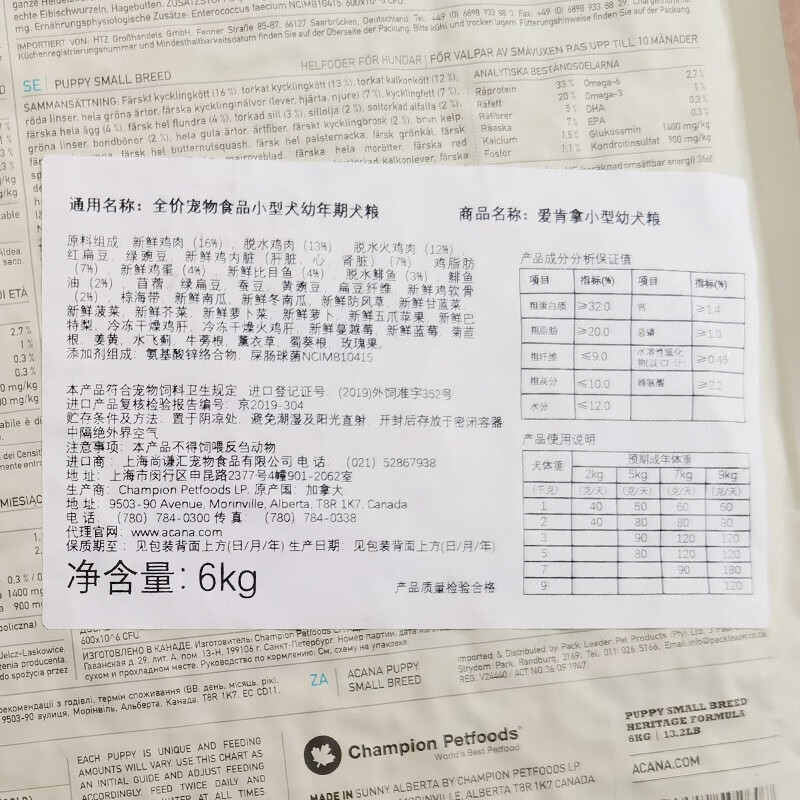 echte Eibischwurzeln, Hagebutten.
mg. Ernährungsphysiologische Zusätze: Enterococcus faecium NCIMB10415: 600x10^6 CFU.
IMPORTIERT VON: HTZ Großhandels GmbH, Fenner Straße 85-87, 66127 Saarbrücken, Deutschland, Tel. +49 (0) 6898 933 88 0 Fax. +49 (0) 6898 933 88 29.
Küchenregistrierungsnummer und Mindesthaltbarkeitsdatum finden Sie auf der Packung. Bitte kühl und trocken lagern. Fütterungshinweise finden Sie auf der Packung.
HELFODER FÖR HUNDAR | FÖR VALPAR AV SMÅVUXEN RAS UPP TILL 10 MÅNADER
SE | PUPPY SMALL BREED
SAMMANSÄTTNING: Färskt kycklingkött (16 %), torkat kycklingkött (13 %), torkat kalkonkött (12 %),
röda linser, hela gröna ärtor, färska kycklinginälvor (lever, hjärta, njure) (7 %), kycklingfett (7 %),
färska hela ägg (4 %), färsk hel flundra (4 %), torkad sill (3 %), sillolja (2 %), soltorkad alfalfa (2 %),
gröna linser, bondbönor (2 %), hela gula ärtor, ärtfiber, färskt kycklingbrosk (2 %), brun kelp,
färsk hel butternutsquash, färsk hel palsternacka, färsk grönkål, färsk
ANALYTISKA BESTÅNDSDELARNA
Råprotein 33 % Omega-6 2,7 %
Råfett 20 % Omega-3 1 %
Råfibrer 5 % DHA 0,3 %
Råaska 7 % EPA 0,3 %
Kalcium 1,5 % Glukosamin 1400 mg/kg
Fosfor 1,1 % Kondroitinsulfat 900 mg/kg
通用名称：全价宠物食品小型犬幼年期犬粮
商品名称：爱肯拿小型幼犬粮
原料组成：新鲜鸡肉（16%）、脱水鸡肉（13%）、脱水火鸡肉（12%）
红扁豆、绿豌豆、新鲜鸡内脏（肝脏、心、肾脏）（7%）、鸡脂肪
（7%）、新鲜鸡蛋（4%）、新鲜比目鱼（4%）、脱水鲱鱼（3%）鲱鱼
油（2%）、苜蓿、绿扁豆、蚕豆、黄豌豆、扁豆纤维、新鲜鸡软骨
（2%）、棕海带、新鲜南瓜、新鲜冬南瓜、新鲜防风草、新鲜甘蓝菜、
新鲜菠菜、新鲜芥菜、新鲜萝卜菜、新鲜萝卜、新鲜五爪苹果、新鲜巴
特梨、冷冻干燥鸡肝、冷冻干燥火鸡肝、新鲜蔓越莓、新鲜蓝莓、菊苣
根、姜黄、水飞蓟、牛蒡根、薰衣草、蜀葵根、玫瑰果。
添加剂组成：氨基酸锌络合物、屎肠球菌NCIMB10415
本产品符合宠物饲料卫生规定 进口登记证号：(2019)外饲准字352号
进口产品复核检验报告编号：京2019-304
贮存条件及方法：置于阴凉处、避免潮湿及阳光直射、开封后存放于密闭容器
中隔绝外界空气
注意事项：本产品不得饲喂反刍动物
进口商：上海尚谦汇宠物食品有限公司 电话：(021) 52867938
地址：上海市闵行区申昆路2377号4幢901-2062室
生产商：Champion Petfoods LP. 原产国：加拿大
地址：9503-90 Avenue, Morinville, Alberta, T8R 1K7, Canada
电话：(780) 784-0300 传真：(780) 784-0338
代理官网：www.acana.com
保质期至：见包装背面上方(日/月/年) 生产日期：见包装背面上方(日/月/年)
净含量：6kg
产品质量检验合格
产品成分分析保证值
项目 指标(%) 项目 指标(%)
粗蛋白质 ≥32.0 钙 ≥1.4
粗脂肪 ≥20.0 总磷 ≥1.0
粗纤维 ≤9.0 水溶性氯化物(以Cl-计) ≥0.45
粗灰分 ≤10.0 赖氨酸 ≥2.2
水分 ≤12.0
产品使用说明
犬体重 预期成年体重
2kg 5kg 7kg 9kg
(千克) (克/天) (克/天) (克/天) (克/天)
1 40 60 60 60
2 40 80 80 80
3 90 120 120
5 80 120 120
7 90 180
9 120
600x10^6 CFU.
ИЗГОТОВЛЕНО В КАНАДЕ. Изготовитель: Champion Petfoods
Гаванская д. 29, лит. А, пом. 13-Н, 199106 г. Санкт-Петербург. Номер партии,
сухом и прохладном месте. Руководство по кормлению. См. схему на упаковке.
ZA | ACANA PUPPY
SMALL BREED
Imported & Distributed by Pack Leader Pet Products (Pty) Ltd.
Strydom Park, Randburg, 2169. Tel: 011 026 5166. Email:info@packleader.co.za
REG. V24440 / ACT NO 36 OF 1947.
9503-90 вулиця, Морінвіль, Альберта, Канада, T8R 1K7. EC CD11.
EACH PUPPY IS UNIQUE AND FEEDING
AMOUNTS WILL VARY. USE THIS CHART AS
AN INITIAL GUIDE AND ADJUST FEEDING
ACCORDINGLY. FEED TWICE DAILY AND
WATER AT ALL TIMES
Champion Petfoods
World's Best Petfood
MADE IN SUNNY ALBERTA BY CHAMPION PETFOODS LP.
MORINVILLE, ALBERTA T8R 1K7 CANADA
PUPPY SMALL BREED
HERITAGE FORMULA
6KG | 13.2LB
ACANA.COM